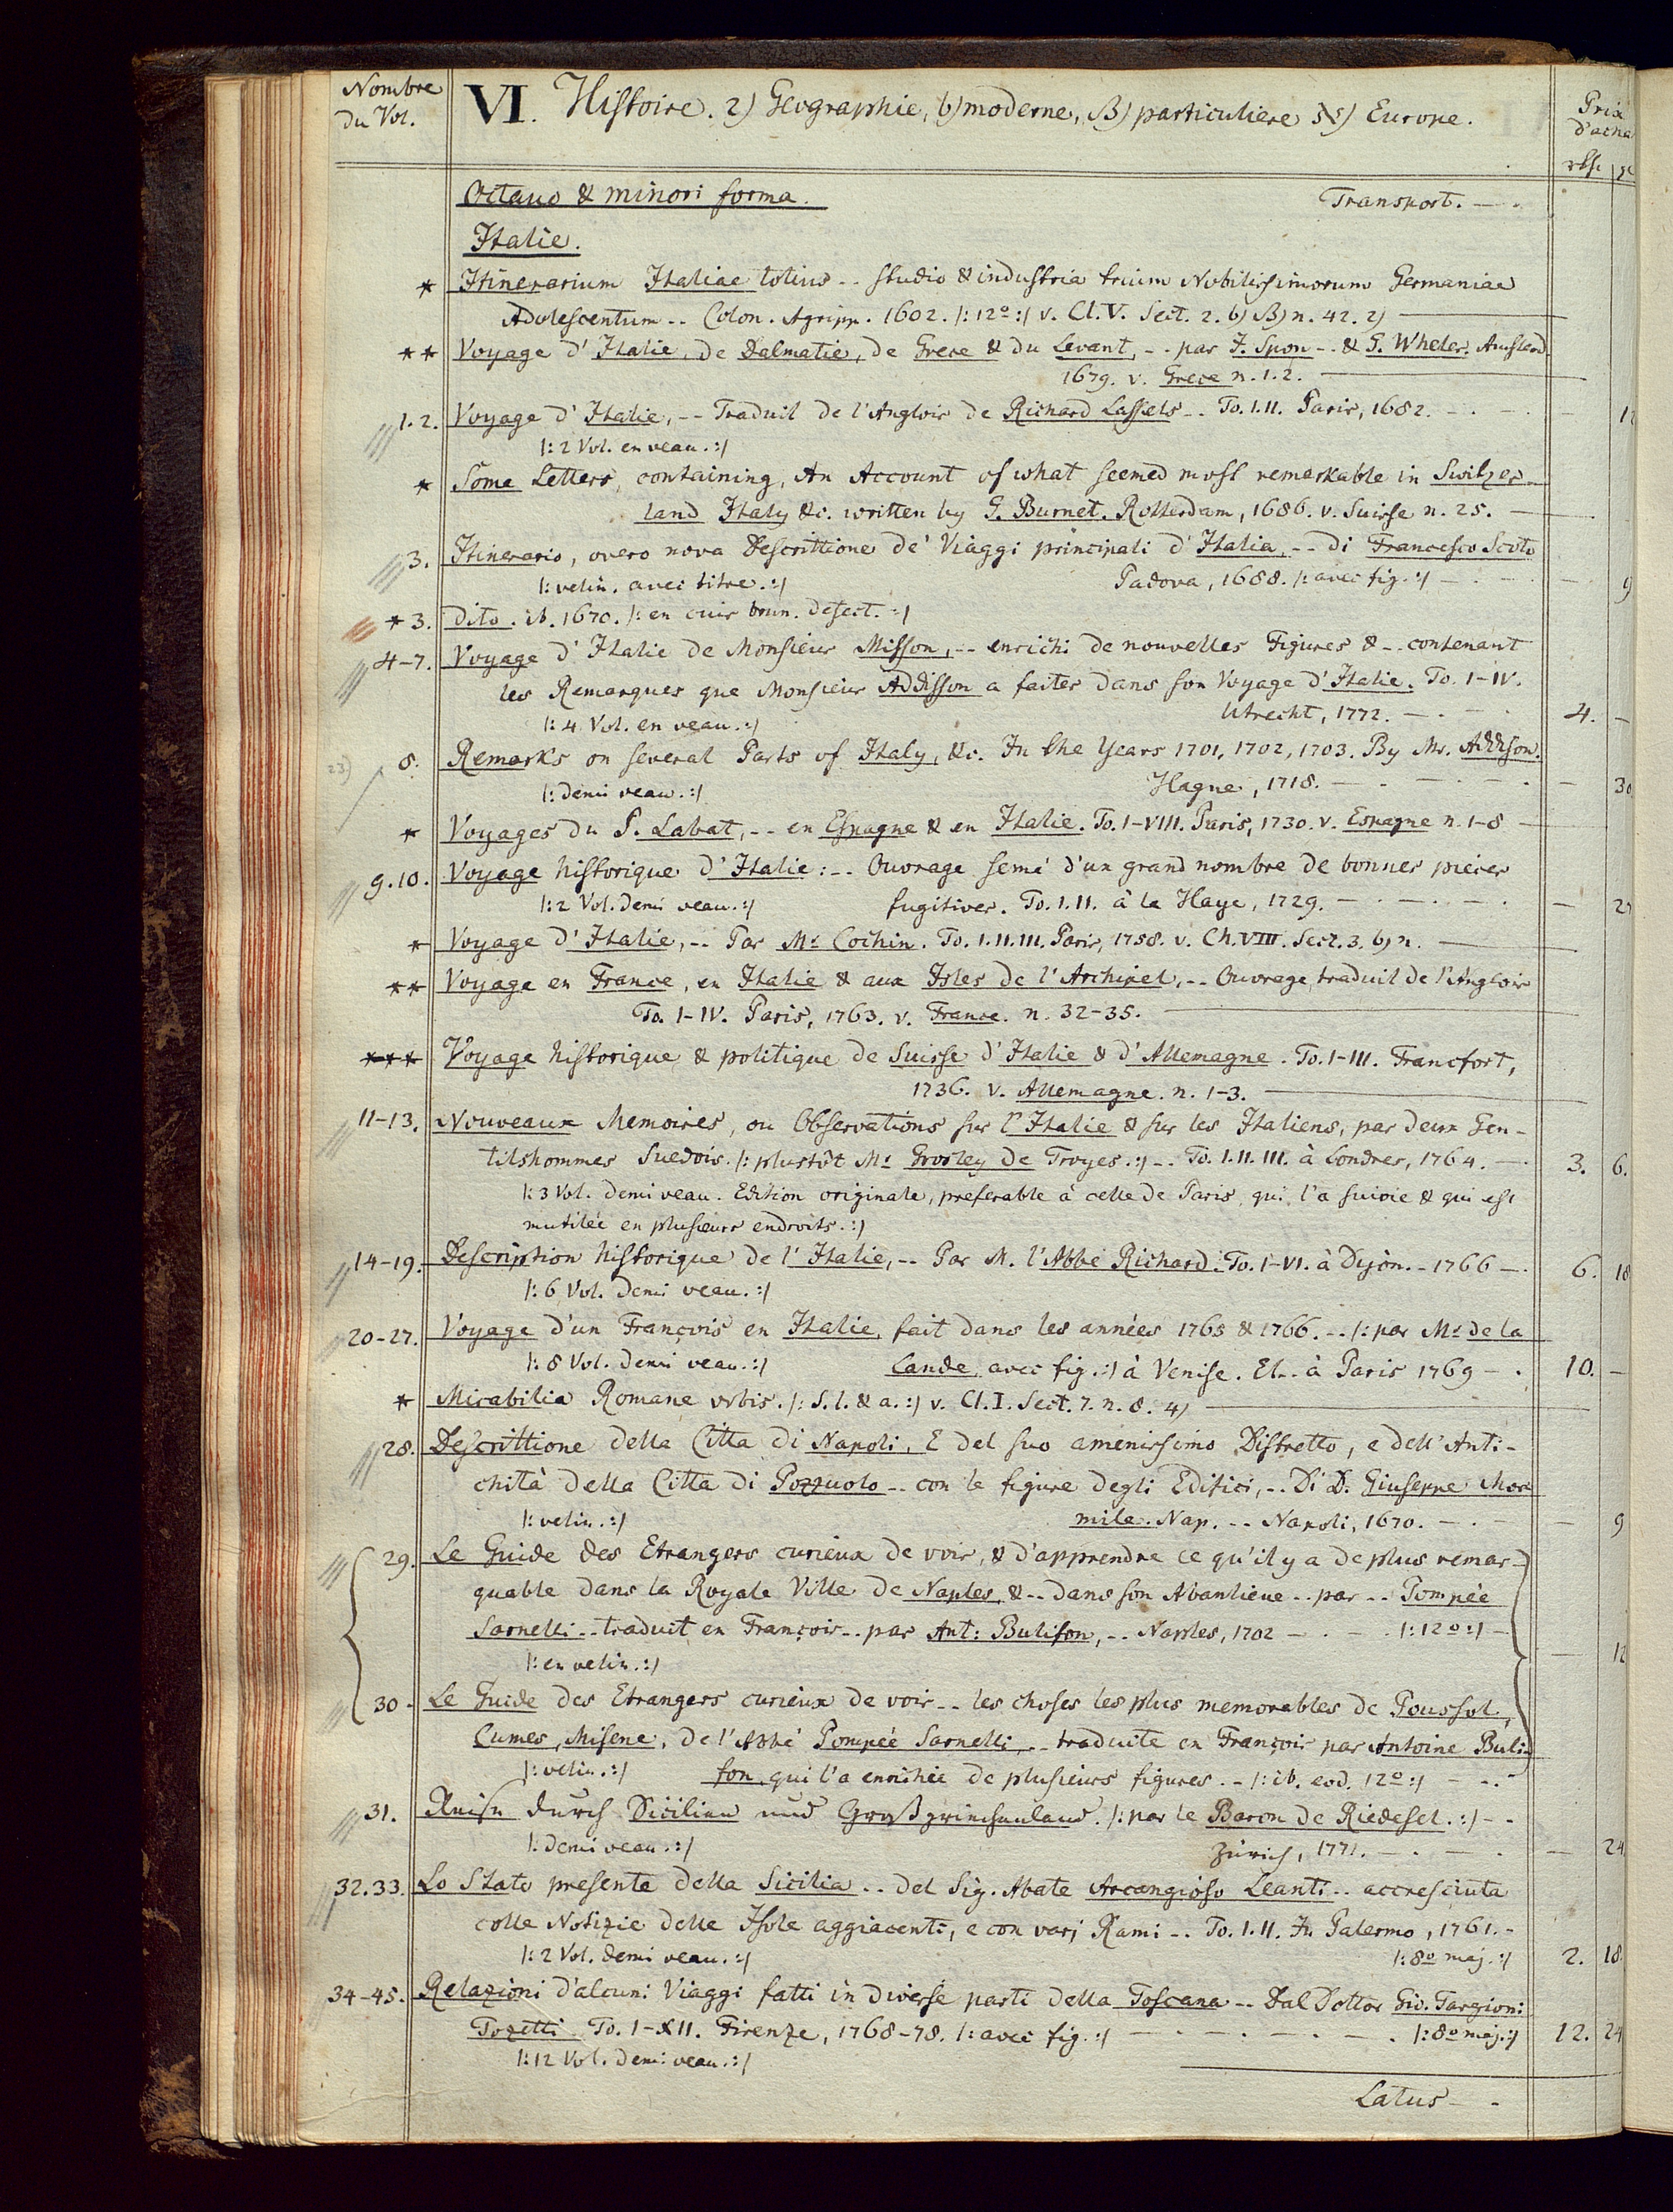 Nombre
du Vol.
VI. Histoire. 2) Geographie, b) moderne, β) particuliere א) Europe.
Prix
d'acha
rthr gr
Octavo & minori forma. Transport. — .
Italie.
* Itinerarium Italiae totius -- studio & industria trium Nobilissimorum Germaniae
Adolescentum -- Colon. Agripp. 1602. /: 12º :/ v. Cl. V. Sect. 2. b) β) n. 42. 2) —
** Voyage d'Italie, de Dalmatie, de Grece & du Levant, -- par J. Spon -- & G. Wheler. Amsterd.
1679. v. Grece n. 1.2. —
1.2. Voyage d'Italie, -- Traduit de l'Anglois de Richard Lassels -- To. I.II. Paris, 1682. — . — 12
/: 2 Vol. en veau. :/
* Some Letters, containing, An Account of what seemed most remarkable in Switzer-
land Italy &c. written by G. Burnet. Rotterdam, 1686. v. Suisse n. 25. —
3. Itinerario, overo nova Descrittione de' Viaggi principali d'Italia, -- di Francesco Scoto
/: velin. avec titre. :/ Padova, 1688. /: avec fig. :/ — . — 9
* 3. Dito. ib. 1670. /: en cuir brun. defect. :/
4-7. Voyage d'Italie de Monsieur Misson, -- enrichi de nouvelles Figures & -- contenant
les Remarques que Monsieur Addisson a faites dans son Voyage d'Italie. To. I-IV.
/: 4 Vol. en veau. :/ Utrecht, 1772. — . — 4. —
23) 8. Remarks on several Parts of Italy, &c. In the Years 1701, 1702, 1703. By Mr. Addison.
/: demi veau. :/ Hague, 1718. — . — 30.
* Voyages du P. Labat, -- en Espagne & en Italie. To. I-VIII. Paris, 1730. v. Espagne n. 1-8 —
9.10. Voyage historique d'Italie: -- Ouvrage semé d'un grand nombre de bonnes pieces
/: 2 Vol. demi veau. :/ fugitives. To. I.II. à la Haye, 1729. — . — . — . — 2
* Voyage d'Italie, -- Par Mr. Cochin. To. I.II.III. Paris, 1758. v. Ch. VIII. Sect. 3. b) n. —
** Voyage en France, en Italie & aux Isles de l'Archipel, -- Ouvrage traduit de l'Anglois
To. I-IV. Paris, 1763. v. France. n. 32-35. —
*** Voyage historique & politique de Suisse d'Italie & d'Allemagne. To. I-III. Francfort,
1736. v. Allemagne. n. 1-3. —
11-13. Nouveaux Memoires, ou Observations sur l'Italie & sur les Italiens, par deux Gen-
tilshommes Suedois. /: plustôt Mr. Grosley de Troyes. :/ -- To. I.II.III. à Londres, 1764. — . 3. 6.
/: 3 Vol. demi veau. Edition originale, preferable à celle de Paris, qui l'a suivie & qui est
mutilée en plusieurs endroits. :/
14-19. Description historique de l'Italie, -- Par M. l'Abbé Richard. To. I-VI. à Dijon. - 1766 — . 6. 18
/: 6 Vol. demi veau. :/
20-27. Voyage d'un François en Italie, fait dans les années 1765 & 1766. -- /: par Mr. de la
/: 8 Vol. demi veau. :/ Lande, avec fig. :/ à Venise. Et -- à Paris 1769 — . 10. —
* Mirabilia Romane vrbis. /: S. l. & a. :/ v. Cl. I. Sect. 7. n. 8. 4) —
28. Descrittione della Citta di Napoli, E del suo amenissimo Distretto, e dell' Anti-
chità della Citta di Pozzuolo -- con le figure degli Edifici, -- Di D. Giuseppe Mor
/: velin. :/ mile. Nap. -- Napoli, 1670. — . — . — 9
29. Le Guide des Etrangers curieux de voir, & d'apprendre ce qu'il y a de plus remar-
quable dans la Royale Ville de Naples, & -- dans son Abanlieue -- par -- Pompée
Sarnelli -- traduit en François -- par Ant: Bulifon, -- Naples, 1702 — . — . /: 12º :/ — — 12
/: en velin. :/
30. Le Guide des Etrangers curieux de voir -- les choses les plus memorables de Poussol,
Cumes, Misene, de l'Abbé Pompée Sarnelli, -- traduite en François par Antoine Buli-
/: velin. :/ fon, qui l'a enrihie de plusieurs figures. -- /: ib. eod. 12º :/ — ..
31. Reise durch Sicilien und Großgriechenland. /: par le Baron de Riedesel. :/ - -
/: demi veau. :/ Zürich, 1771. — . — . — 24.
32.33. Lo Stato presente della Sicilia -- del Sig. Abate Arcangioso Leanti -- accresciuta
colle Notizie delle Isole aggiacenti, e con varj Rami -- To. I.II. In Palermo, 1761. -
/: 2 Vol. demi veau. :/ /: 8º maj. :/ 2. 18.
34-45. Relazioni d'alcuni Viaggi fatti in diverse parti della Toscana -- Dal Dottor Gio. Targioni
Tozetti. To. I-XII. Firenze, 1768-78. /: avec fig. :/ — . — . — . — . /: 8º maj. :/ 12. 24
/: 12 Vol. demi veau. :/
Latus - -